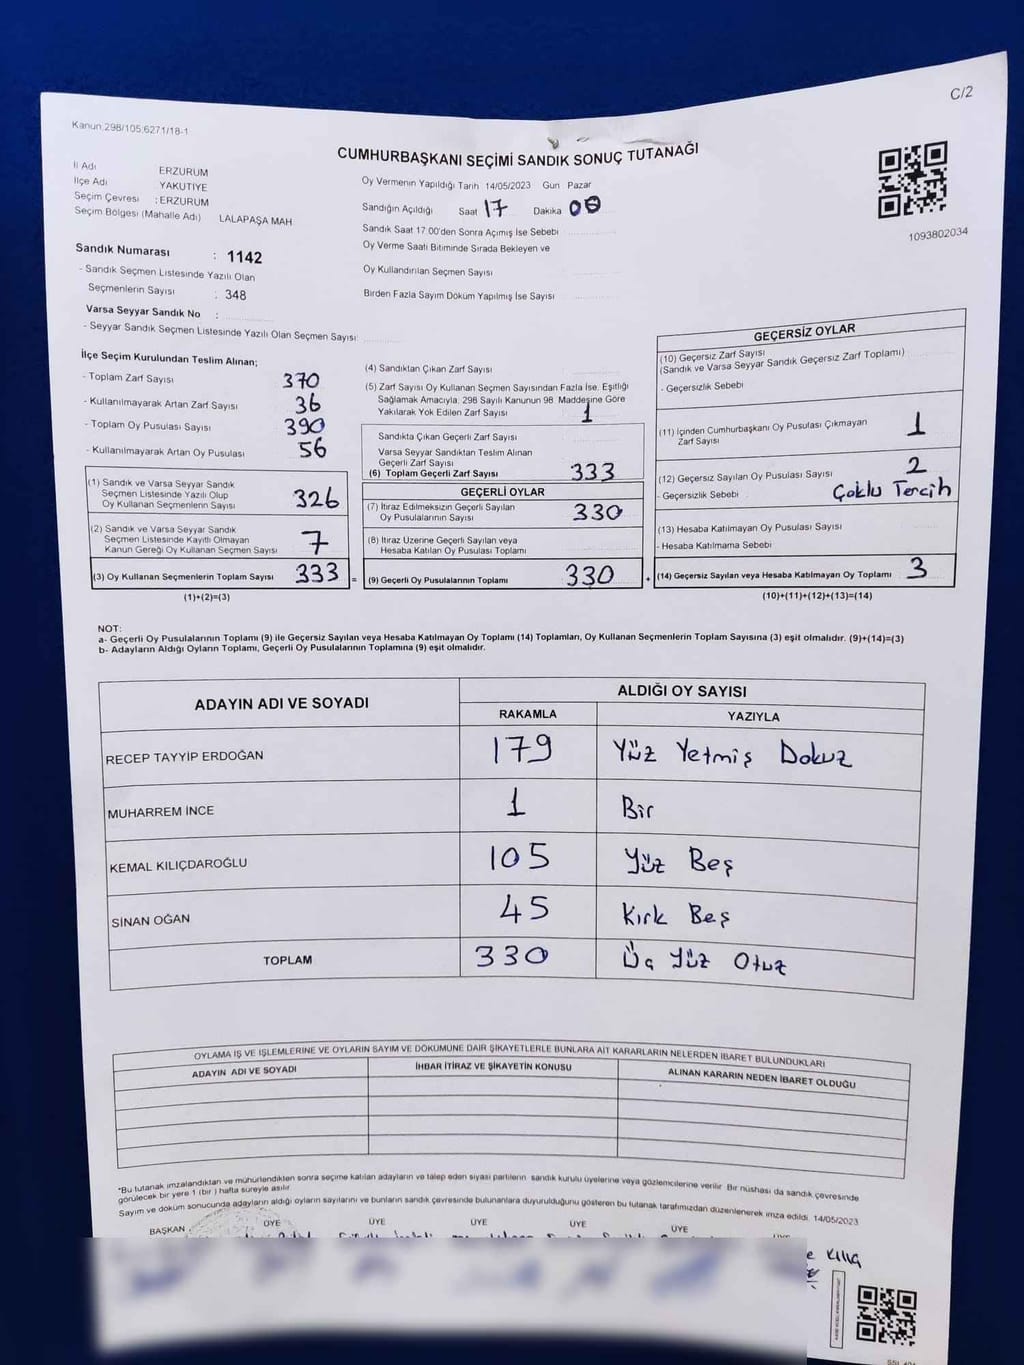 C/2
Kanun:298/105;6271/18-1
CUMHURBAŞKANI SEÇİMİ SANDIK SONUÇ TUTANAĞI
İl Adı ERZURUM
İlçe Adı YAKUTİYE
Seçim Çevresi : ERZURUM
Seçim Bölgesi (Mahalle Adı) LALAPAŞA MAH
Oy Vermenin Yapıldığı Tarih 14/05/2023 Gün Pazar
Sandığın Açıldığı Saat 17 Dakika 00
Sandık Saat 17:00'den Sonra Açımış İse Sebebi
Oy Verme Saati Bitiminde Sırada Bekleyen ve
Oy Kullandırılan Seçmen Sayısı
Birden Fazla Sayım Döküm Yapılmış İse Sayısı
1093802034
Sandık Numarası : 1142
- Sandık Seçmen Listesinde Yazılı Olan
Seçmenlerin Sayısı : 348
Varsa Seyyar Sandık No :
- Seyyar Sandık Seçmen Listesinde Yazılı Olan Seçmen Sayısı:
İlçe Seçim Kurulundan Teslim Alınan;
- Toplam Zarf Sayısı 370
- Kullanılmayarak Artan Zarf Sayısı 36
- Toplam Oy Pusulası Sayısı 390
- Kullanılmayarak Artan Oy Pusulası 56
(1) Sandık ve Varsa Seyyar Sandık
Seçmen Listesinde Yazılı Olup
Oy Kullanan Seçmenlerin Sayısı 326
(2) Sandık ve Varsa Seyyar Sandık
Seçmen Listesinde Kayıtlı Olmayan
Kanun Gereği Oy Kullanan Seçmen Sayısı 7
(3) Oy Kullanan Seçmenlerin Toplam Sayısı 333
(1)+(2)=(3)
(4) Sandıktan Çıkan Zarf Sayısı
(5) Zarf Sayısı Oy Kullanan Seçmen Sayısından Fazla İse, Eşitliği
Sağlamak Amacıyla; 298 Sayılı Kanunun 98. Maddesine Göre
Yakılarak Yok Edilen Zarf Sayısı 1
Sandıkta Çıkan Geçerli Zarf Sayısı
Varsa Seyyar Sandıktan Teslim Alınan
Geçerli Zarf Sayısı
(6) Toplam Geçerli Zarf Sayısı 333
GEÇERLİ OYLAR
(7) İtiraz Edilmeksizin Geçerli Sayılan
Oy Pusulalarının Sayısı 330
(8) İtiraz Üzerine Geçerli Sayılan veya
Hesaba Katılan Oy Pusulası Toplamı
= (9) Geçerli Oy Pusulalarının Toplamı 330
GEÇERSİZ OYLAR
(10) Geçersiz Zarf Sayısı
(Sandık ve Varsa Seyyar Sandık Geçersiz Zarf Toplamı)
- Geçersizlik Sebebi
(11) İçinden Cumhurbaşkanı Oy Pusulası Çıkmayan
Zarf Sayısı 1
(12) Geçersiz Sayılan Oy Pusulası Sayısı 2
- Geçersizlik Sebebi Çoklu Tercih
(13) Hesaba Katılmayan Oy Pusulası Sayısı
- Hesaba Katılmama Sebebi
+ (14) Geçersiz Sayılan veya Hesaba Katılmayan Oy Toplamı 3
(10)+(11)+(12)+(13)=(14)
NOT:
a- Geçerli Oy Pusulalarının Toplamı (9) ile Geçersiz Sayılan veya Hesaba Katılmayan Oy Toplamı (14) Toplamları, Oy Kullanan Seçmenlerin Toplam Sayısına (3) eşit olmalıdır. (9)+(14)=(3)
b- Adayların Aldığı Oyların Toplamı, Geçerli Oy Pusulalarının Toplamına (9) eşit olmalıdır.
ADAYIN ADI VE SOYADI ALDIĞI OY SAYISI
RAKAMLA YAZIYLA
RECEP TAYYİP ERDOĞAN 179 Yüz Yetmiş Dokuz
MUHARREM İNCE 1 Bir
KEMAL KILIÇDAROĞLU 105 Yüz Beş
SİNAN OĞAN 45 Kırk Beş
TOPLAM 330 Üç Yüz Otuz
OYLAMA İŞ VE İŞLEMLERİNE VE OYLARIN SAYIM VE DÖKÜMÜNE DAİR ŞİKAYETLERLE BUNLARA AİT KARARLARIN NELERDEN İBARET BULUNDUKLARI
ADAYIN ADI VE SOYADI İHBAR İTİRAZ VE ŞİKAYETİN KONUSU ALINAN KARARIN NEDEN İBARET OLDUĞU
*Bu tutanak imzalandıktan ve mühürlendikten sonra seçime katılan adayların ve talep eden siyasi partilerin sandık kurulu üyelerine veya gözlemcilerine verilir. Bir nüshası da sandık çevresinde
görülecek bir yere 1 (bir) hafta süreyle asılır.
Sayım ve döküm sonucunda adayların aldığı oyların sayılarını ve bunların sandık çevresinde bulunanlara duyurulduğunu gösteren bu tutanak tarafımızdan düzenlenerek imza edildi. 14/05/2023
BAŞKAN ÜYE ÜYE ÜYE ÜYE ÜYE